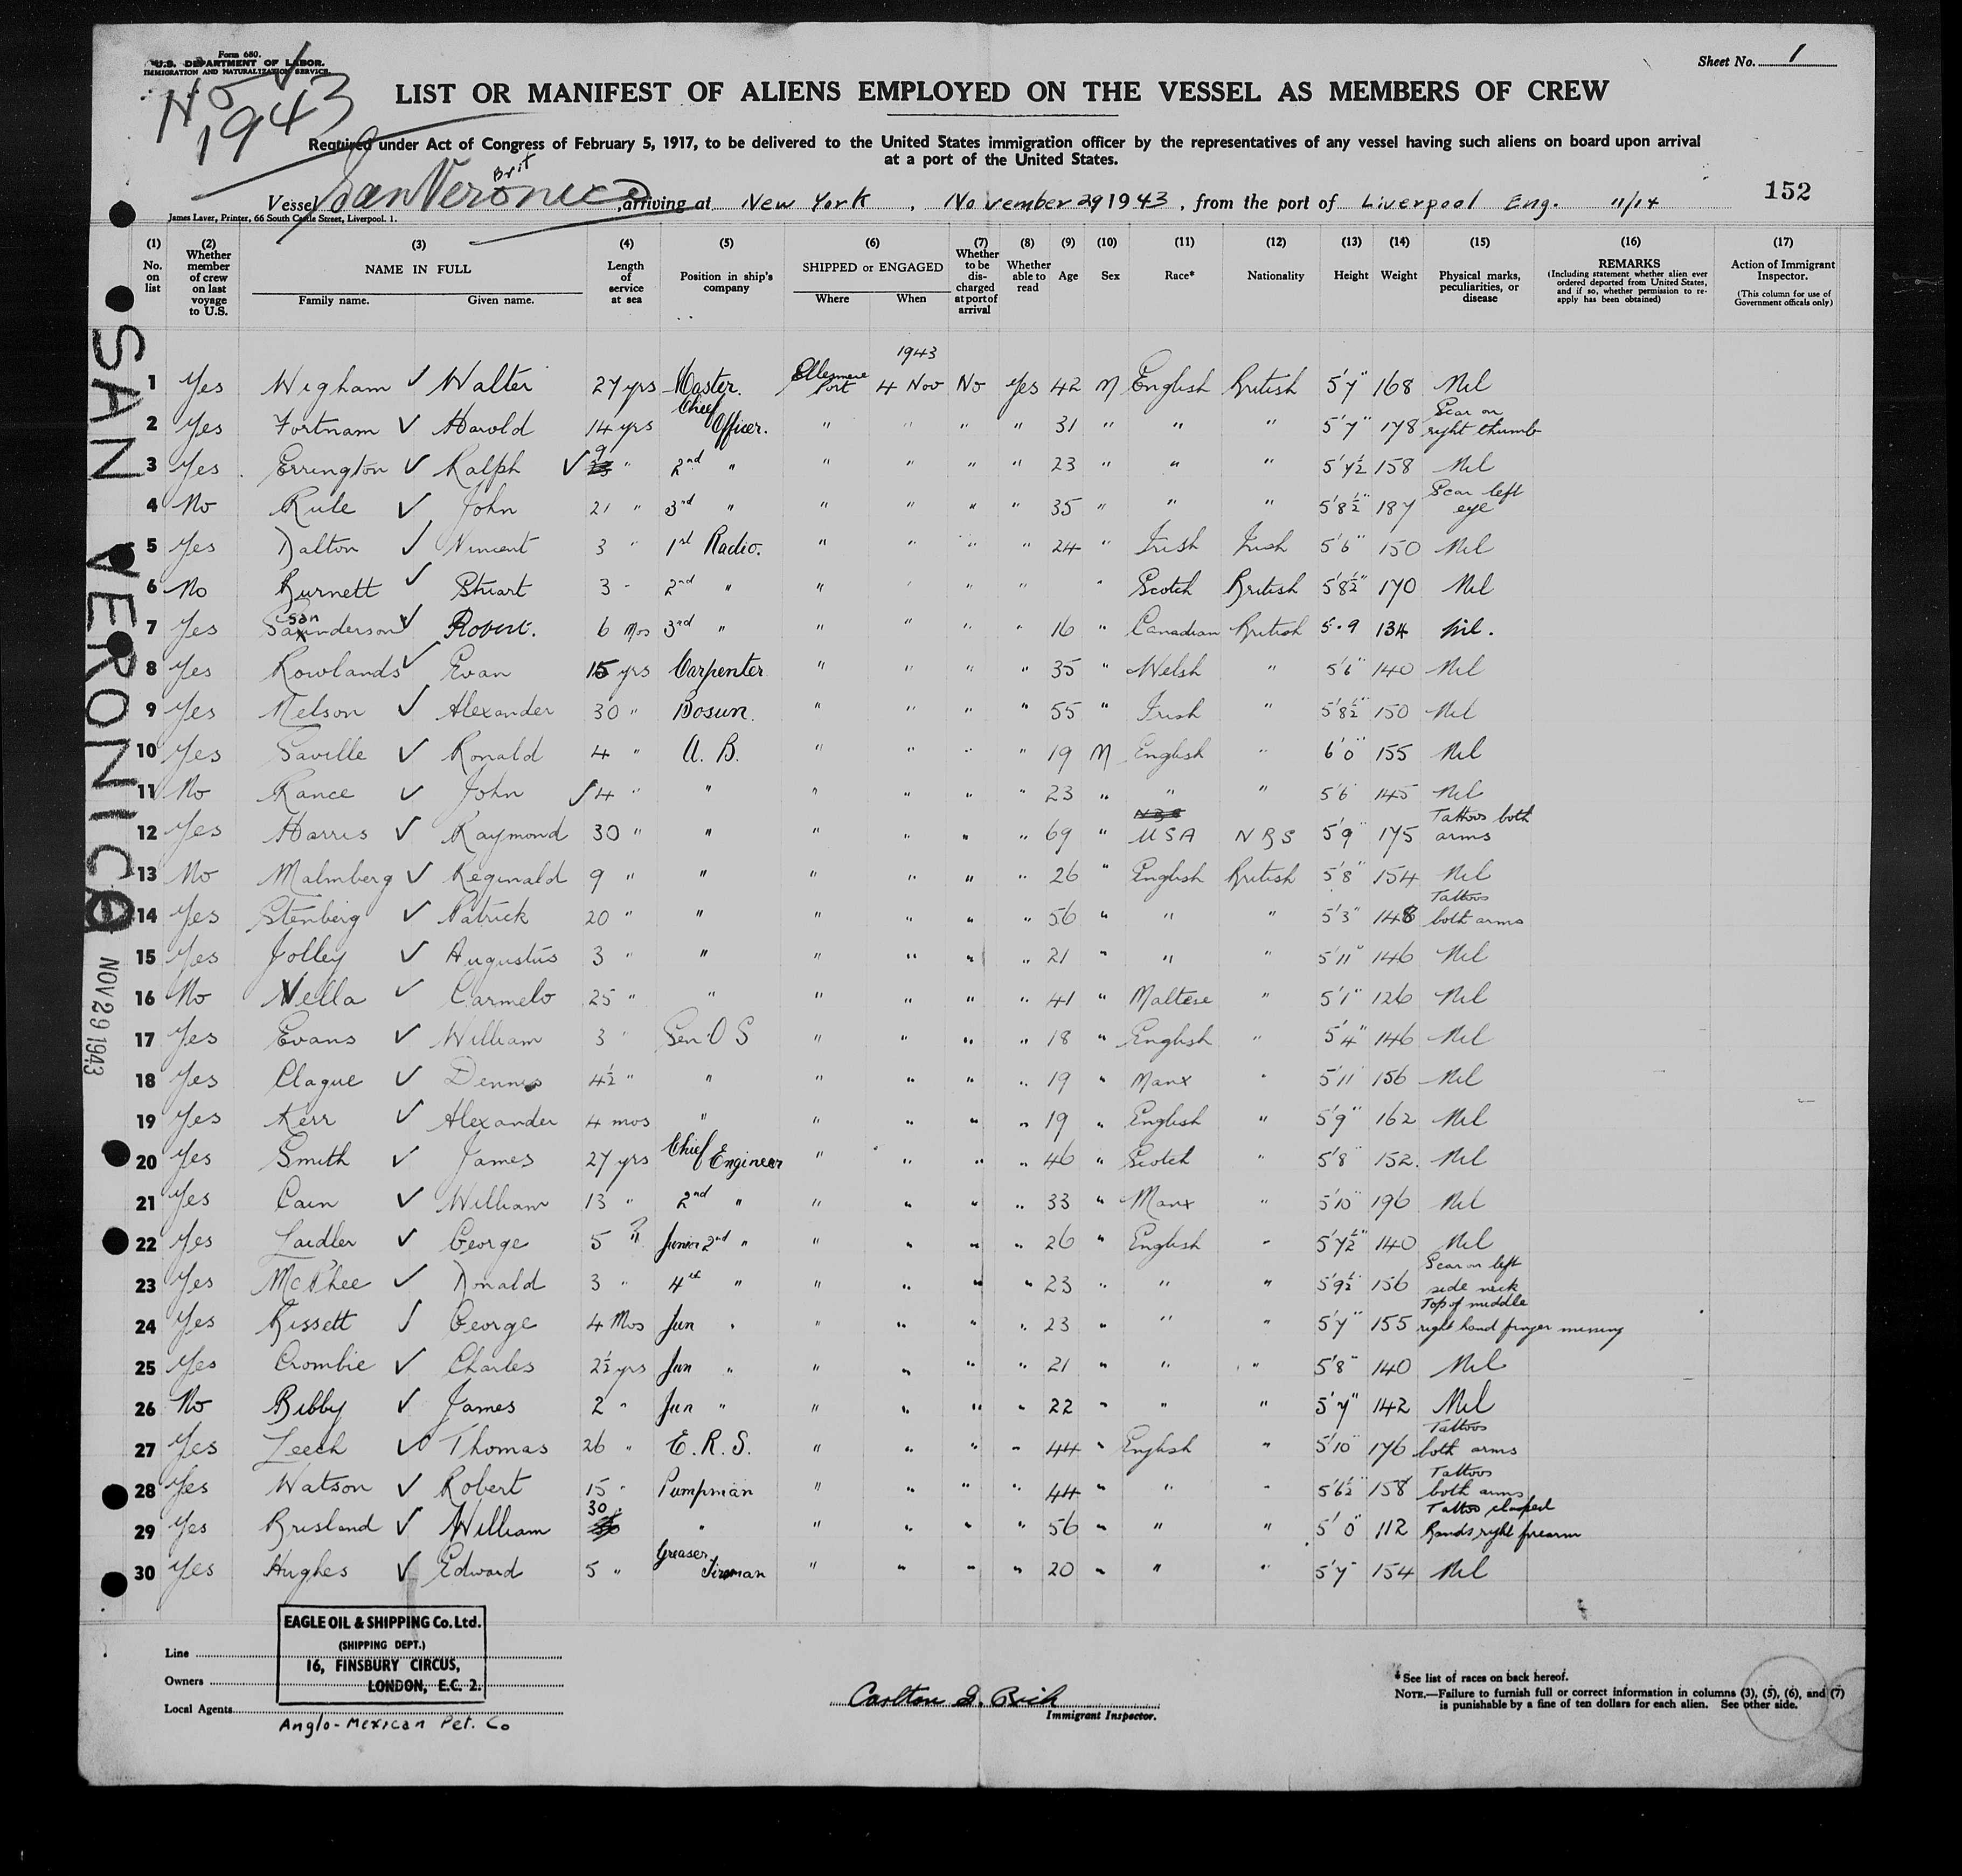 Form 680.
U.S. DEPARTMENT OF LABOR.
IMMIGRATION AND NATURALIZATION SERVICE.
Sheet No. 1
1943
LIST OR MANIFEST OF ALIENS EMPLOYED ON THE VESSEL AS MEMBERS OF CREW
Required under Act of Congress of February 5, 1917, to be delivered to the United States immigration officer by the representatives of any vessel having such aliens on board upon arrival
at a port of the United States.
Brit
Vessel San Veronico, arriving at New York, November 29 1943, from the port of Liverpool Eng. 11/14
152
James Laver, Printer, 66 South Castle Street, Liverpool. 1.
(1) No. on list (2) Whether member of crew on last voyage to U.S. (3) NAME IN FULL Family name. Given name. (4) Length of service at sea (5) Position in ship's company (6) SHIPPED or ENGAGED Where When (7) Whether to be discharged at port of arrival (8) Whether able to read (9) Age (10) Sex (11) Race* (12) Nationality (13) Height (14) Weight (15) Physical marks, peculiarities, or disease (16) REMARKS (Including statement whether alien ever ordered deported from United States, and if so, whether permission to re-apply has been obtained) (17) Action of Immigrant Inspector. (This column for use of Government officials only)
1943
1 Yes Wigham ✓ Walter 27 yrs Master. Ellesmere Port 4 Nov No Yes 42 M English British 5'7" 168 Nil
2 Yes Fortnam ✓ Harold 14 yrs Chief Officer. " " " " 31 " " " 5'7" 178 Scar on right thumb
3 Yes Errington ✓ Ralph ✓ 9 " 2nd " " " " " 23 " " " 5'7½ 158 Nil
4 No Rule ✓ John 21 " 3rd " " " " " 35 " " " 5'8½" 187 Scar left eye
5 Yes Dalton ✓ Vincent 3 " 1st Radio. " " " " 24 " Irish Irish 5'6" 150 Nil
6 No Burnett ✓ Stuart 3 " 2nd " " " " " " Scotch British 5'8½" 170 Nil
7 Yes Saunderson san ✓ Robert. 6 Mos 3rd " " " " " 16 " Canadian British 5.9 134 Nil.
8 Yes Rowlands ✓ Evan 15 yrs Carpenter " " " " 35 " Welsh " 5'6" 140 Nil
9 Yes Nelson ✓ Alexander 30 " Bosun. " " " " 55 " Irish " 5'8½" 150 Nil
10 Yes Saville ✓ Ronald 4 " A. B. " " " " 19 M English " 6'0" 155 Nil
11 No Rance ✓ John ✓ 4 " " " " " " 23 " " " 5'6 145 Nil
12 Yes Harris ✓ Raymond 30 " " " " " " 69 " USA NBS 5'9" 175 Tattoos both arms
13 No Malmberg ✓ Reginald 9 " " " " " " 26 " English British 5'8" 154 Nil
14 Yes Stenberg ✓ Patrick 20 " " " " " " 56 " " " 5'3" 148 Tattoos both arms
15 Yes Jolley ✓ Augustus 3 " " " " " " 21 " " " 5'11" 146 Nil
16 No Vella ✓ Carmelo 25 " " " " " " 41 " Maltese " 5'1" 126 Nil
17 Yes Evans ✓ William 3 " Sen O S " " " " 18 " English " 5'4" 146 Nil
18 Yes Clague ✓ Dennis 4½ " " " " " " 19 " Manx " 5'11 156 Nil
19 Yes Kerr ✓ Alexander 4 mos " " " " " 19 " English " 5'9" 162 Nil
20 Yes Smith ✓ James 27 yrs Chief Engineer " " " " 46 " Scotch " 5'8" 152. Nil
21 Yes Cain ✓ William 13 " 2nd " " " " " 33 " Manx " 5'10" 196 Nil
22 Yes Laidler ✓ George 5 " Junior 2nd " " " " " 26 " English " 5'7½" 140 Nil
23 Yes McPhee ✓ Donald 3 " 4th " " " " " 23 " " " 5'9½" 156 Scar on left side neck
24 Yes Bissett ✓ George 4 Mos Jun " " " " " 23 " " " 5'7" 155 Top of middle right hand finger missing
25 Yes Crombie ✓ Charles 2½ yrs Jun " " " " " 21 " " " 5'8" 140 Nil
26 No Bibby ✓ James 2 " Jun " " " " " 22 " " " 5'7" 142 Nil
27 Yes Leech ✓ Thomas 26 " E. R. S. " " " " 44 " English " 5'10" 176 Tattoos both arms
28 Yes Watson ✓ Robert 15 " Pumpman " " " " 44 " " " 5'6½" 158 Tattoos both arms
29 Yes Brisland ✓ William 30 " " " " " 56 " " " 5'0" 112 Tattoo clasped hands right forearm
30 Yes Hughes ✓ Edward 5 " Greaser Fireman " " " " 20 " " " 5'7" 154 Nil
SAN VERONICO
NOV 29 1943
Line
Owners
Local Agents
EAGLE OIL & SHIPPING Co. Ltd.
(SHIPPING DEPT.)
16, FINSBURY CIRCUS,
LONDON, E.C. 2.
Anglo-Mexican Pet. Co
Immigrant Inspector.
* See list of races on back hereof.
NOTE.—Failure to furnish full or correct information in columns (3), (5), (6), and (7)
is punishable by a fine of ten dollars for each alien. See other side.